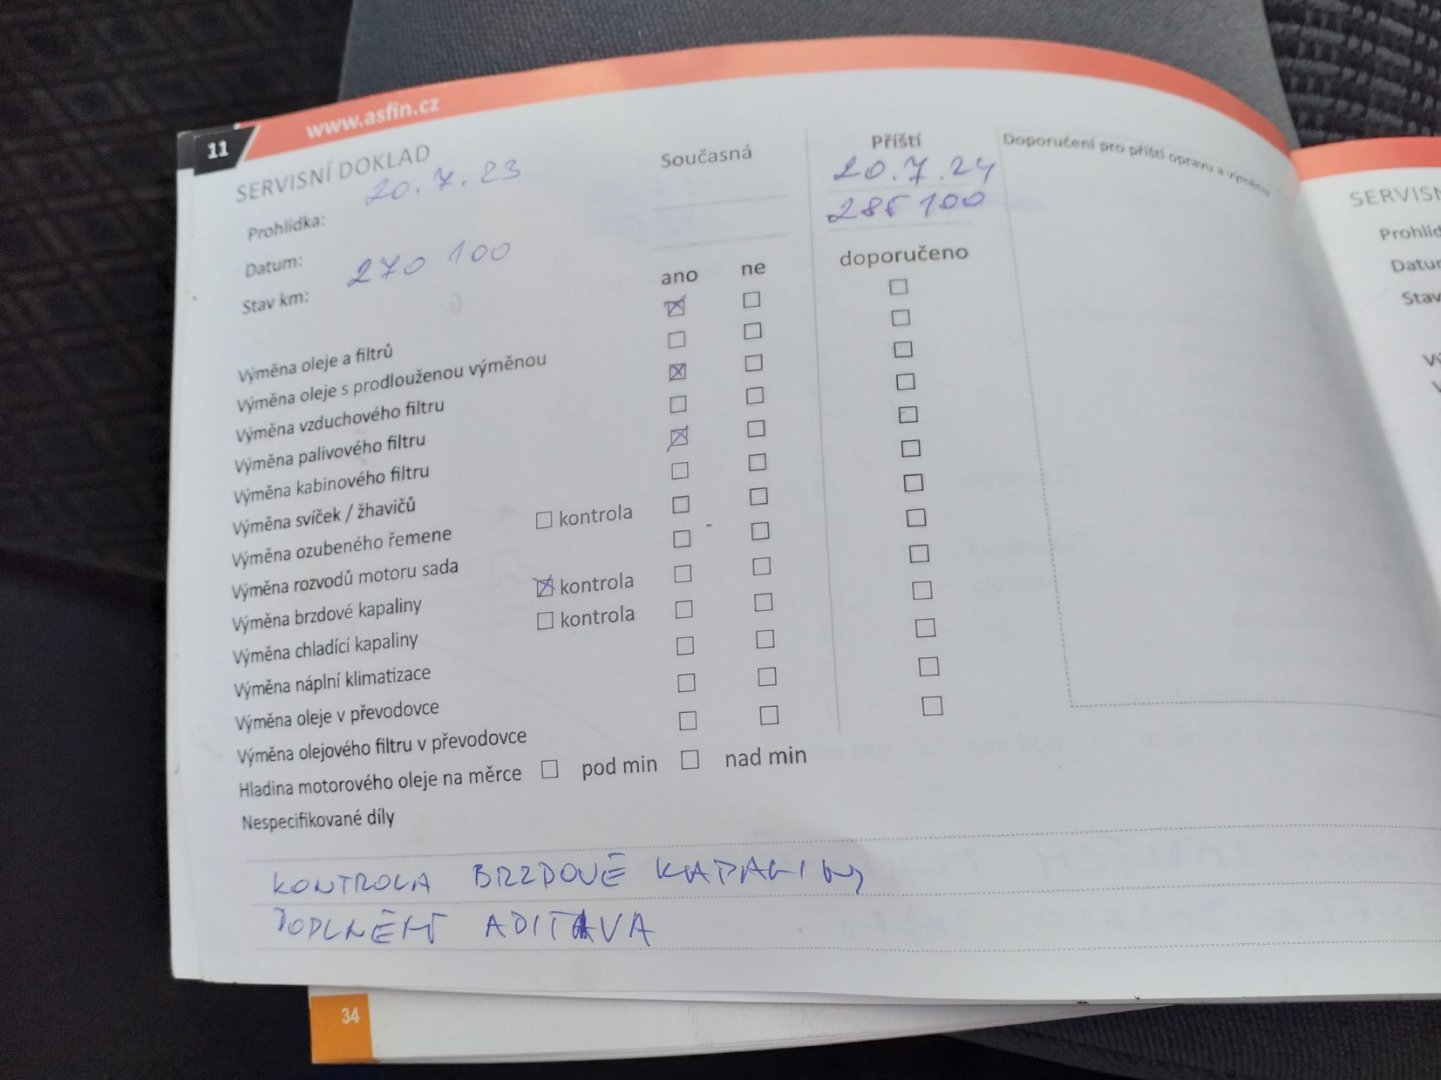 www.asfin.cz
11
SERVISNÍ DOKLAD
20.7.23
Současná
Příští
Doporučení pro příští opravu a výměnu
Prohlídka:
20.7.24
Datum:
270 100
285 100
Stav km:
ano
ne
doporučeno
Výměna oleje a filtrů
Výměna oleje s prodlouženou výměnou
Výměna vzduchového filtru
Výměna palivového filtru
Výměna kabinového filtru
Výměna svíček / žhavičů
Výměna ozubeného řemene
kontrola
Výměna rozvodů motoru sada
Výměna brzdové kapaliny
kontrola
Výměna chladící kapaliny
kontrola
Výměna náplní klimatizace
Výměna oleje v převodovce
Výměna olejového filtru v převodovce
Hladina motorového oleje na měrce
pod min
nad min
Nespecifikované díly
KONTROLA BRZDOVÉ KAPALINY
DOPLNĚNÍ ADITIVA
34
SERVISN
Prohlíd
Datu
Stav